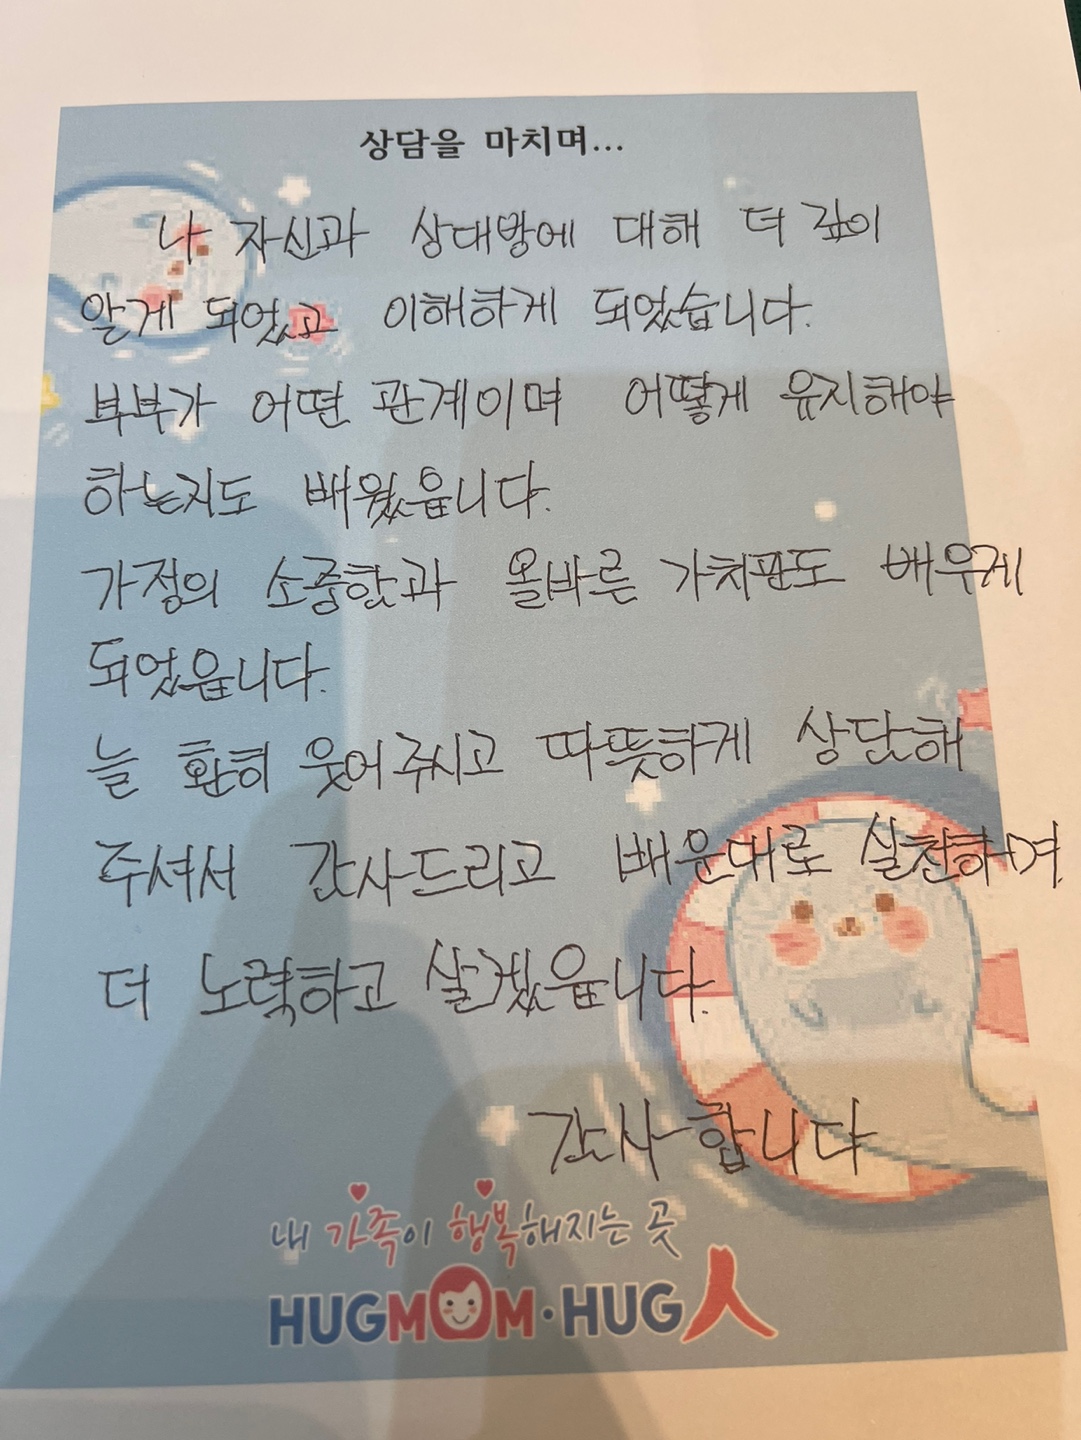 상담을 마치며...
나 자신과 상대방에 대해 더 깊이
알게 되었고 이해하게 되었습니다.
부부가 어떤 관계이며 어떻게 유지해야
하는지도 배웠읍니다.
가정의 소중함과 올바른 가치관도 배우게
되었읍니다.
늘 환히 웃어주시고 따뜻하게 상담해
주셔서 감사드리고 배운대로 실천하며
더 노력하고 살겠읍니다.
감사합니다
내 가족이 행복해지는 곳
HUGMOM·HUG人